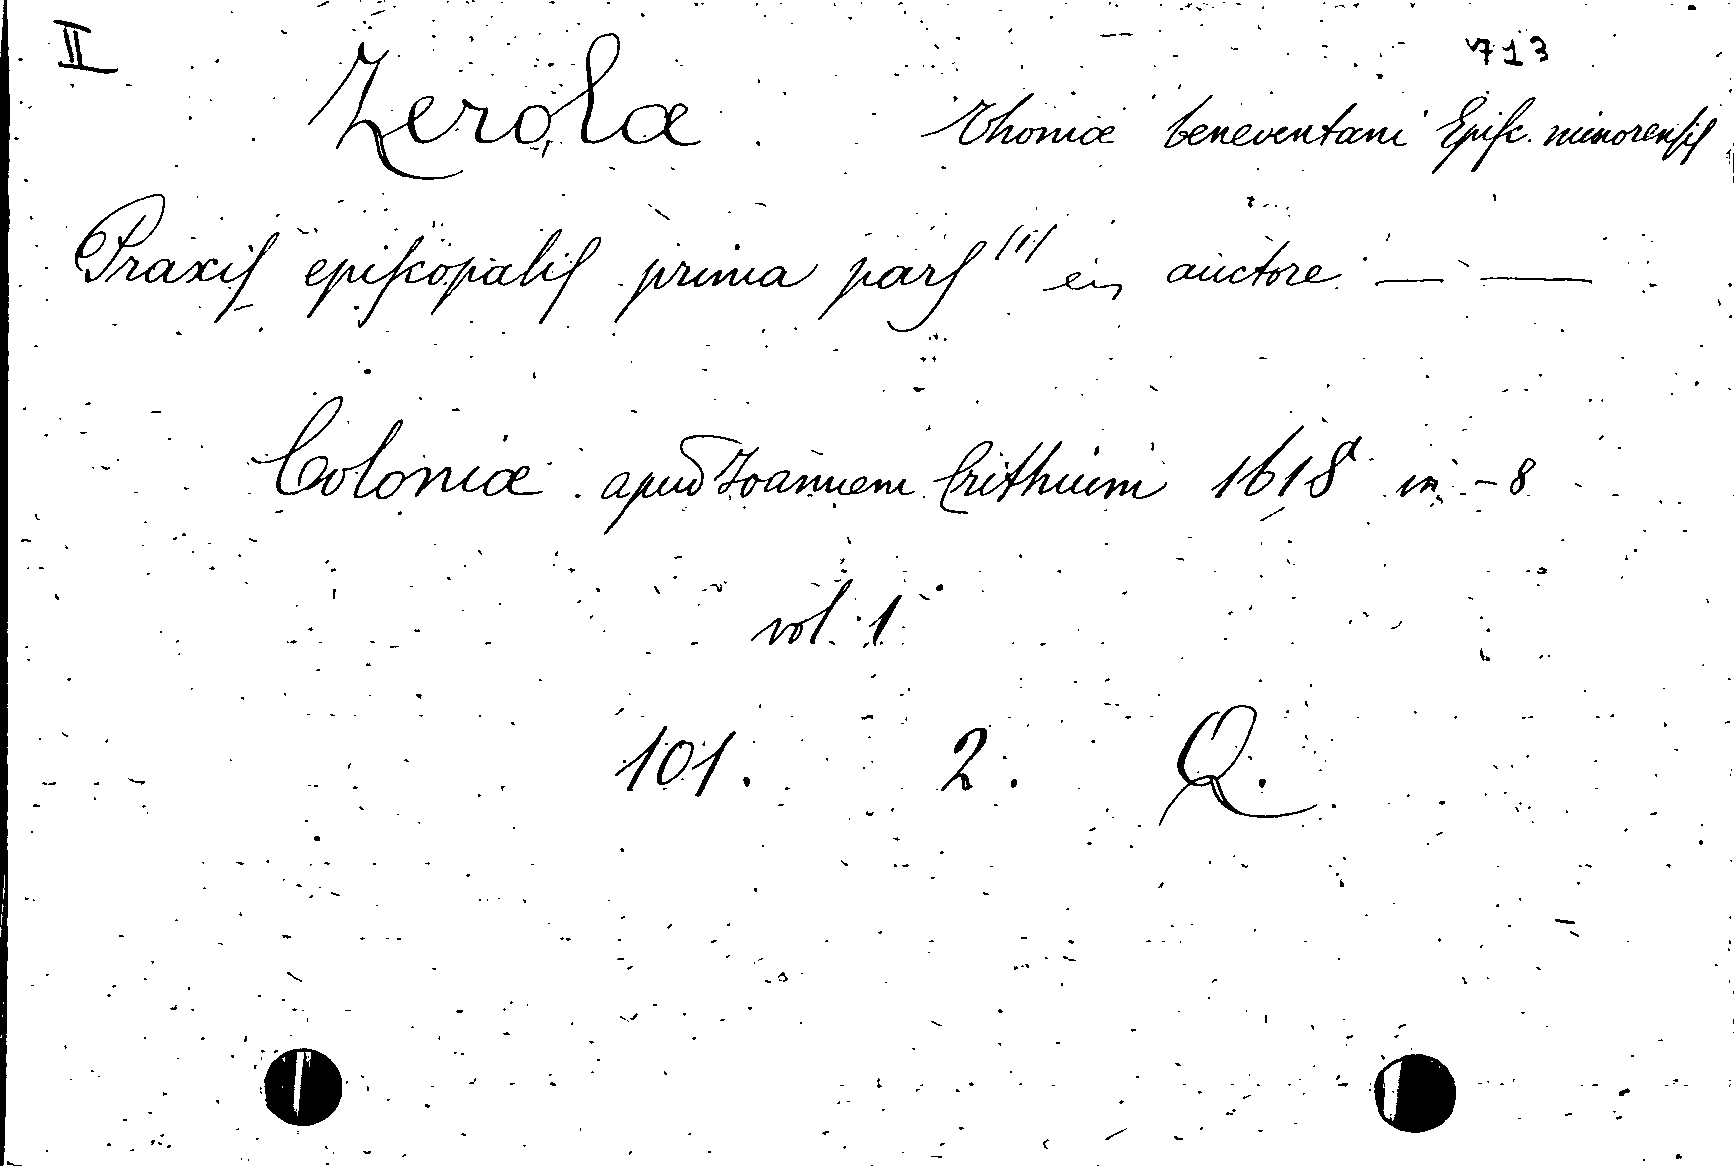 II 713
Zerolæ Thomæ beneventani Episc. minorensis
Praxis episcopalis prima pars auctore — —
Coloniæ apud Joannem Crithium 1618 in -8
vol. 1
101. 2. Q.